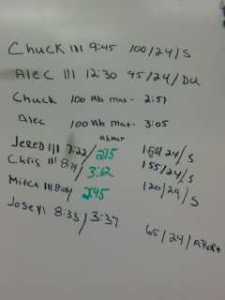 Chuck 111 9:45 100/24/S
Alec 111 12:30 95/24/DU
Chuck 100 Ab mat- 2:51
Alec 100 Ab mat- 3:05
Abmat
Jered 111 7:22/2:15 159/24/S
Chris 111 8:14/3:02 155/24/S
Mitch 111 8:04 2:45 120/24/S
Joseph 8:33/3:37 65/24/